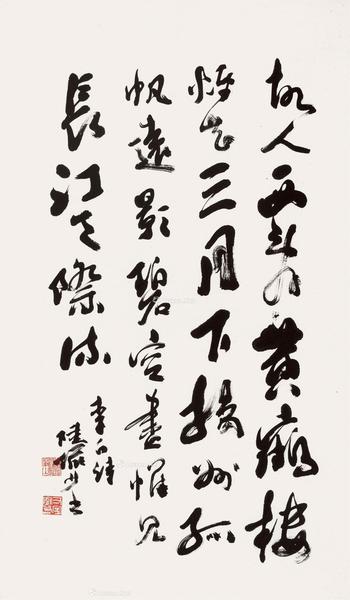 故人西辭黄鶴樓
煙花三月下揚州孤
帆遠影碧空盡惟見
長江天際流
李白詩
陸儼少書